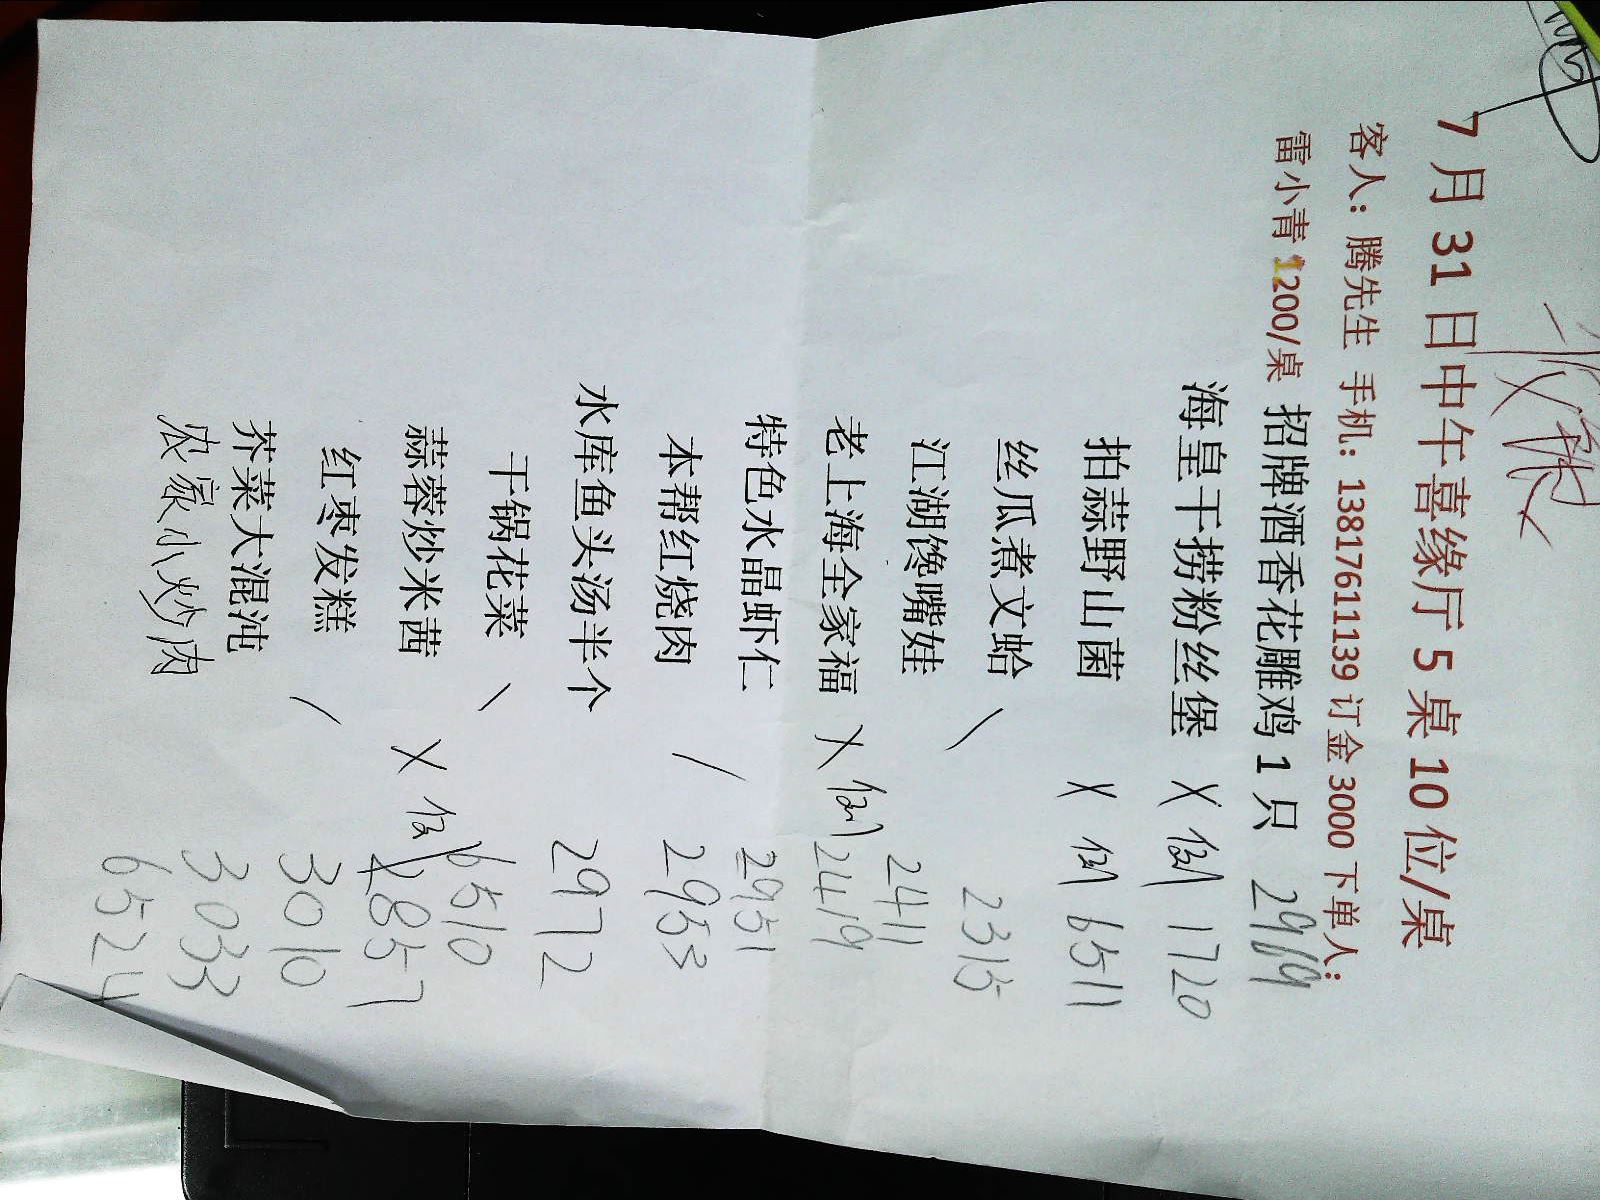 7月31日中午喜缘厅5桌10位/桌
客人：腾先生 手机：13817611139 订金3000 下单人：
雷小青 1200/桌 招牌酒香花雕鸡1只 2969
海皇干捞粉丝堡 X 例 1720
拍蒜野山菌 X 例 6511
丝瓜煮文蛤 2315
江湖馋嘴娃 2411
老上海全家福 X 例 2419
特色水晶虾仁 2951
本帮红烧肉 2953
水库鱼头汤半个 2972
干锅花菜 6510
蒜蓉炒米茜 X 例 2857
红枣发糕 3010
芥菜大混沌 3033
农家小炒肉 6524